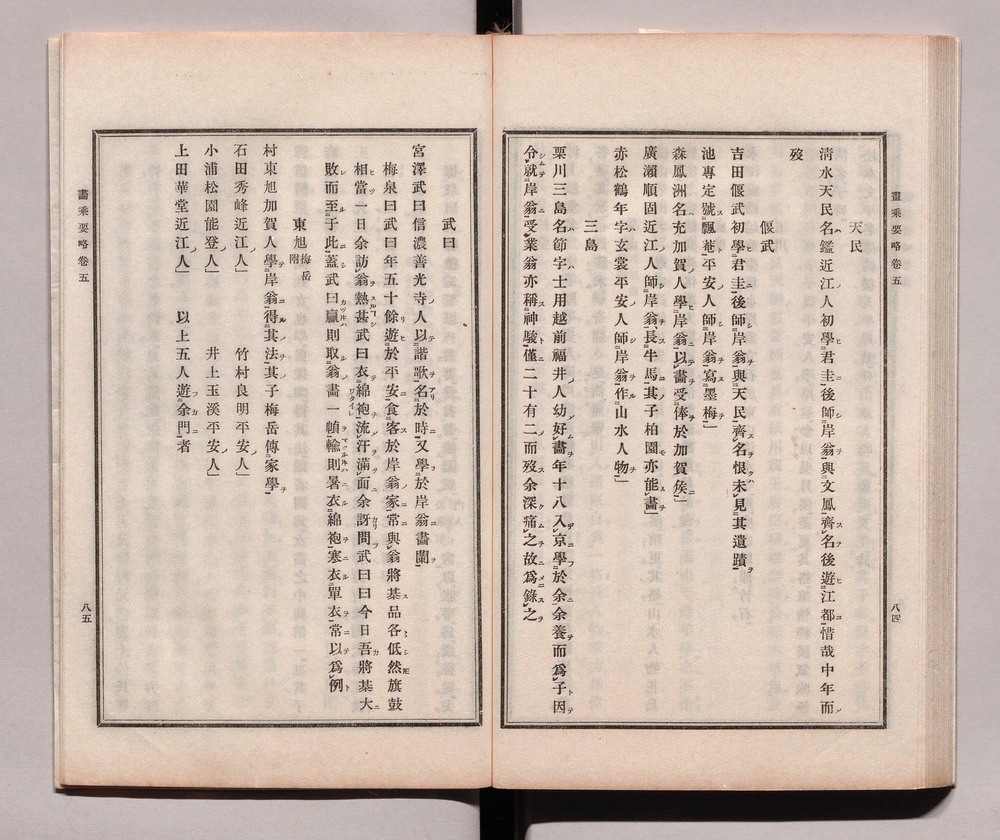 畫乘要略卷五
八四
天民
淸水天民名鑑近江人初學君圭後師岸翁與文鳳齊名後遊江都惜哉中年而
歿
偃武
吉田偃武初學君圭後師岸翁與天民齊名恨未見其遺蹟
池專定號飄菴平安人師岸翁寫墨梅」
森鳳洲名充加賀人學岸翁以畫受俸於加賀矦」
廣瀨順固近江人師岸翁長牛馬其子柏園亦能畫」
赤松鶴年字玄裳平安人師岸翁作山水人物」
三島
栗川三島名節字士用越前福井人幼好畫年十八入京學於余余養而爲子因
令就岸翁受業翁亦稱神駿僅二十有二而歿余深痛之故爲錄之
武曰
宮澤武曰信濃善光寺人以諧歌名於時又學於岸翁畫蘭
梅泉曰武曰年五十餘遊於平安食客於岸翁家常與翁將棊品各低然旗鼓
相當一日余訪翁熱甚武曰衣綿袍流汗滿面余訝問武曰曰今日吾將棊大
敗而至于此蓋武曰贏則取翁畫一幀輸則暑衣綿袍寒衣單衣常以爲例
東旭 梅岳附
村東旭加賀人學岸翁得其法其子梅岳傳家學
石田秀峰近江人」 竹村良明平安人」
小浦松園能登人」 井上玉溪平安人」
上田華堂近江人」 以上五人遊余門者
畫乘要略卷五
八五